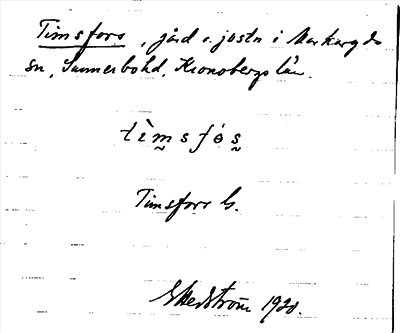 Timsfors, jord o. jästn i Markaryds
sn, Sunnerbohd, Kronobergs län.
tìmsfȯs
Timsfors G.
E Hedström 1920.